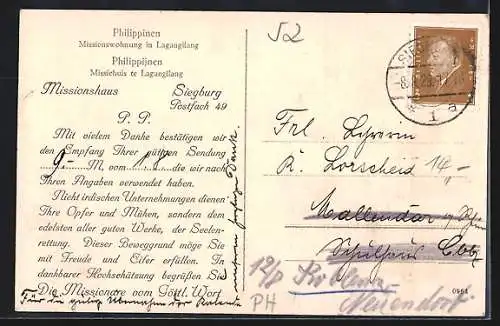 Philippinen
Missionswohnung in Lagangilang
Philippijnen
Missiehuis te Lagangilang
Missionshaus Siegburg
Postfach 49
P. P.
Mit vielem Danke bestätigen wir
den Empfang Ihrer gütigen Sendung
9.- M. vom die wir nach
Ihren Angaben verwendet haben.
Nicht irdischen Unternehmungen dienen
Ihre Opfer und Mühen, sondern dem
edelsten aller guten Werke, der Seelen-
rettung. Dieser Beweggrund möge Sie
mit Freude und Eifer erfüllen. In
dankbarer Hochschätzung begrüßen Sie
Die Missionare vom Göttl. Wort
Für die gütige Übernahme der Kalender
Dank.
52
Frl. Lehrerin
K. Lorscheid 14,-
Mallendar a. Rhein
Schulhaus Cblz
12/8 Koblenz
Neuendorf
PH
0964